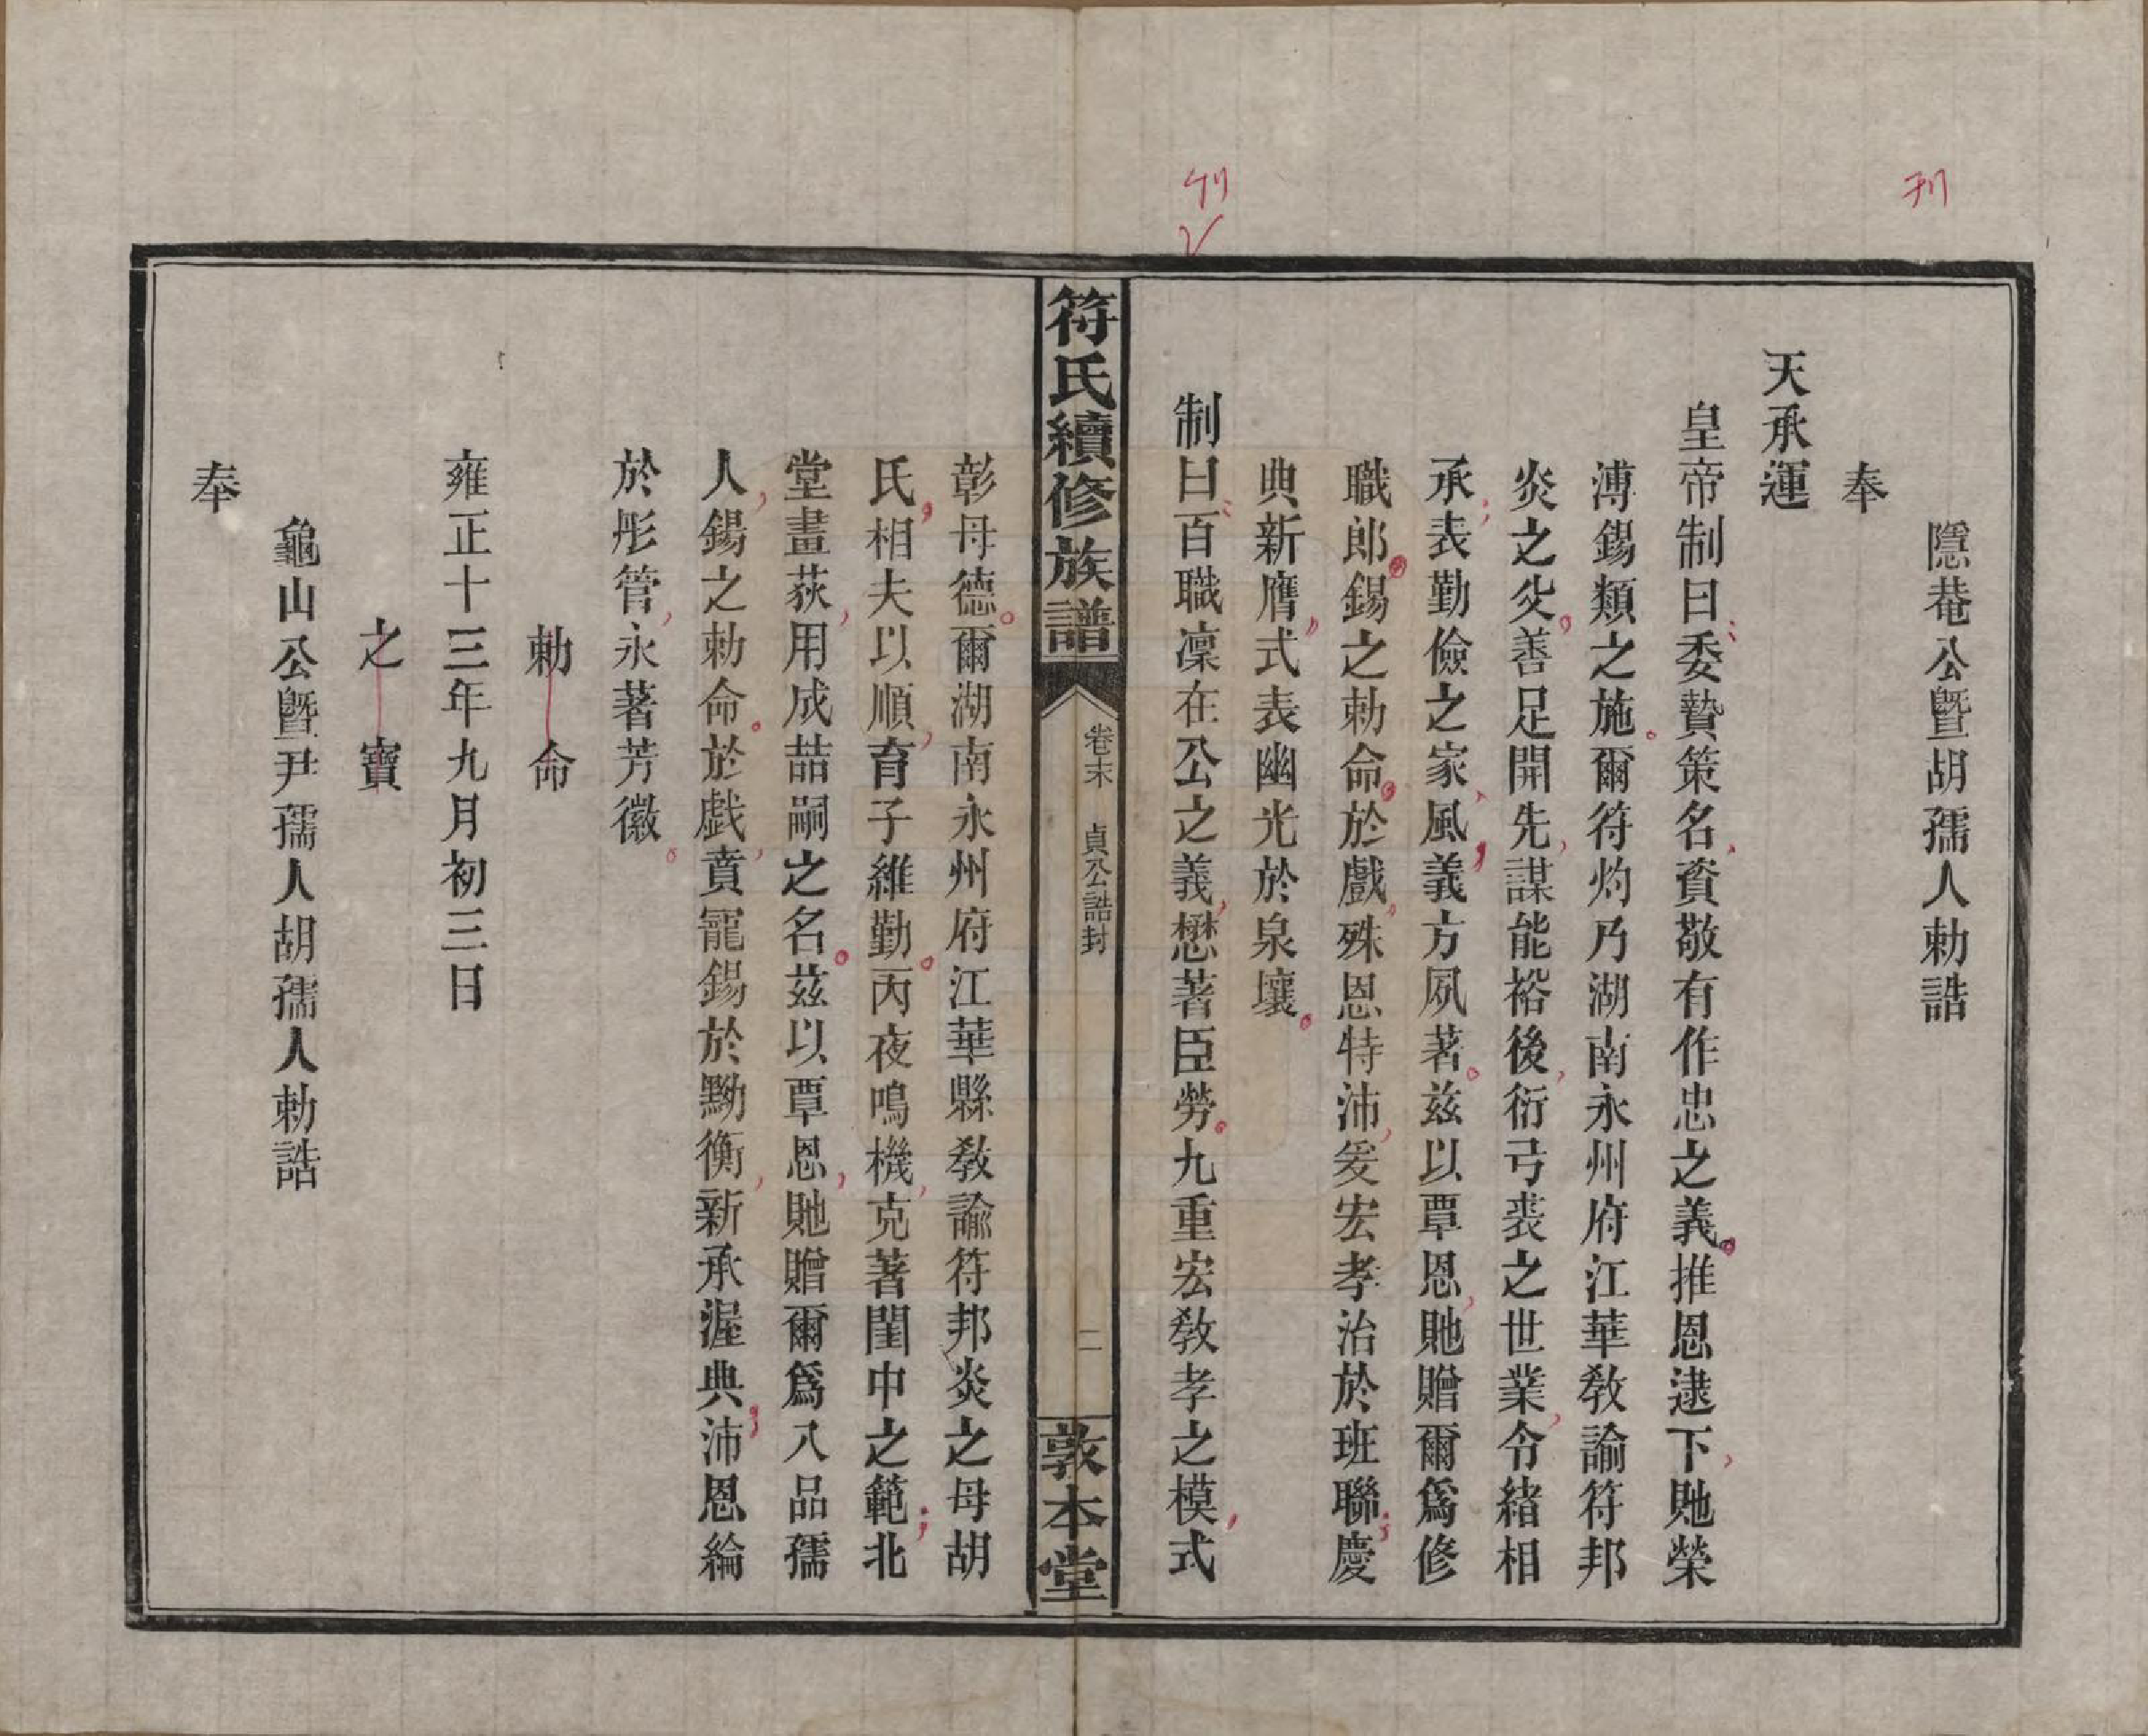 刊
刊
隱菴公曁胡孺人勅誥
奉
天承運
皇帝制曰委贄策名資敬有作忠之義推恩逮下貤榮
溥錫類之施爾符灼乃湖南永州府江華教諭符邦
炎之父善足開先謀能裕後衍弓裘之世業令緒相
承表勤儉之家風義方夙著兹以覃恩貤贈爾爲修
職郎錫之勅命於戲殊恩特沛爰宏孝治於班聯慶
典新膺式表幽光於泉壤
制曰百職凜在公之義懋著臣勞九重宏敎孝之模式
符氏續修族譜
卷末 貞公誥封
二
敦本堂
彰母德爾湖南永州府江華縣敎諭符邦炎之母胡
氏相夫以順育子維勤丙夜鳴機克著閨中之範北
堂畫荻用成喆嗣之名兹以覃恩貤贈爾爲八品孺
人錫之勅命於戲賁寵錫於黝衡新承渥典沛恩綸
於彤管永著芳徽
勅命
雍正十三年九月初三日
之寶
龜山公曁尹孺人胡孺人勅誥
奉